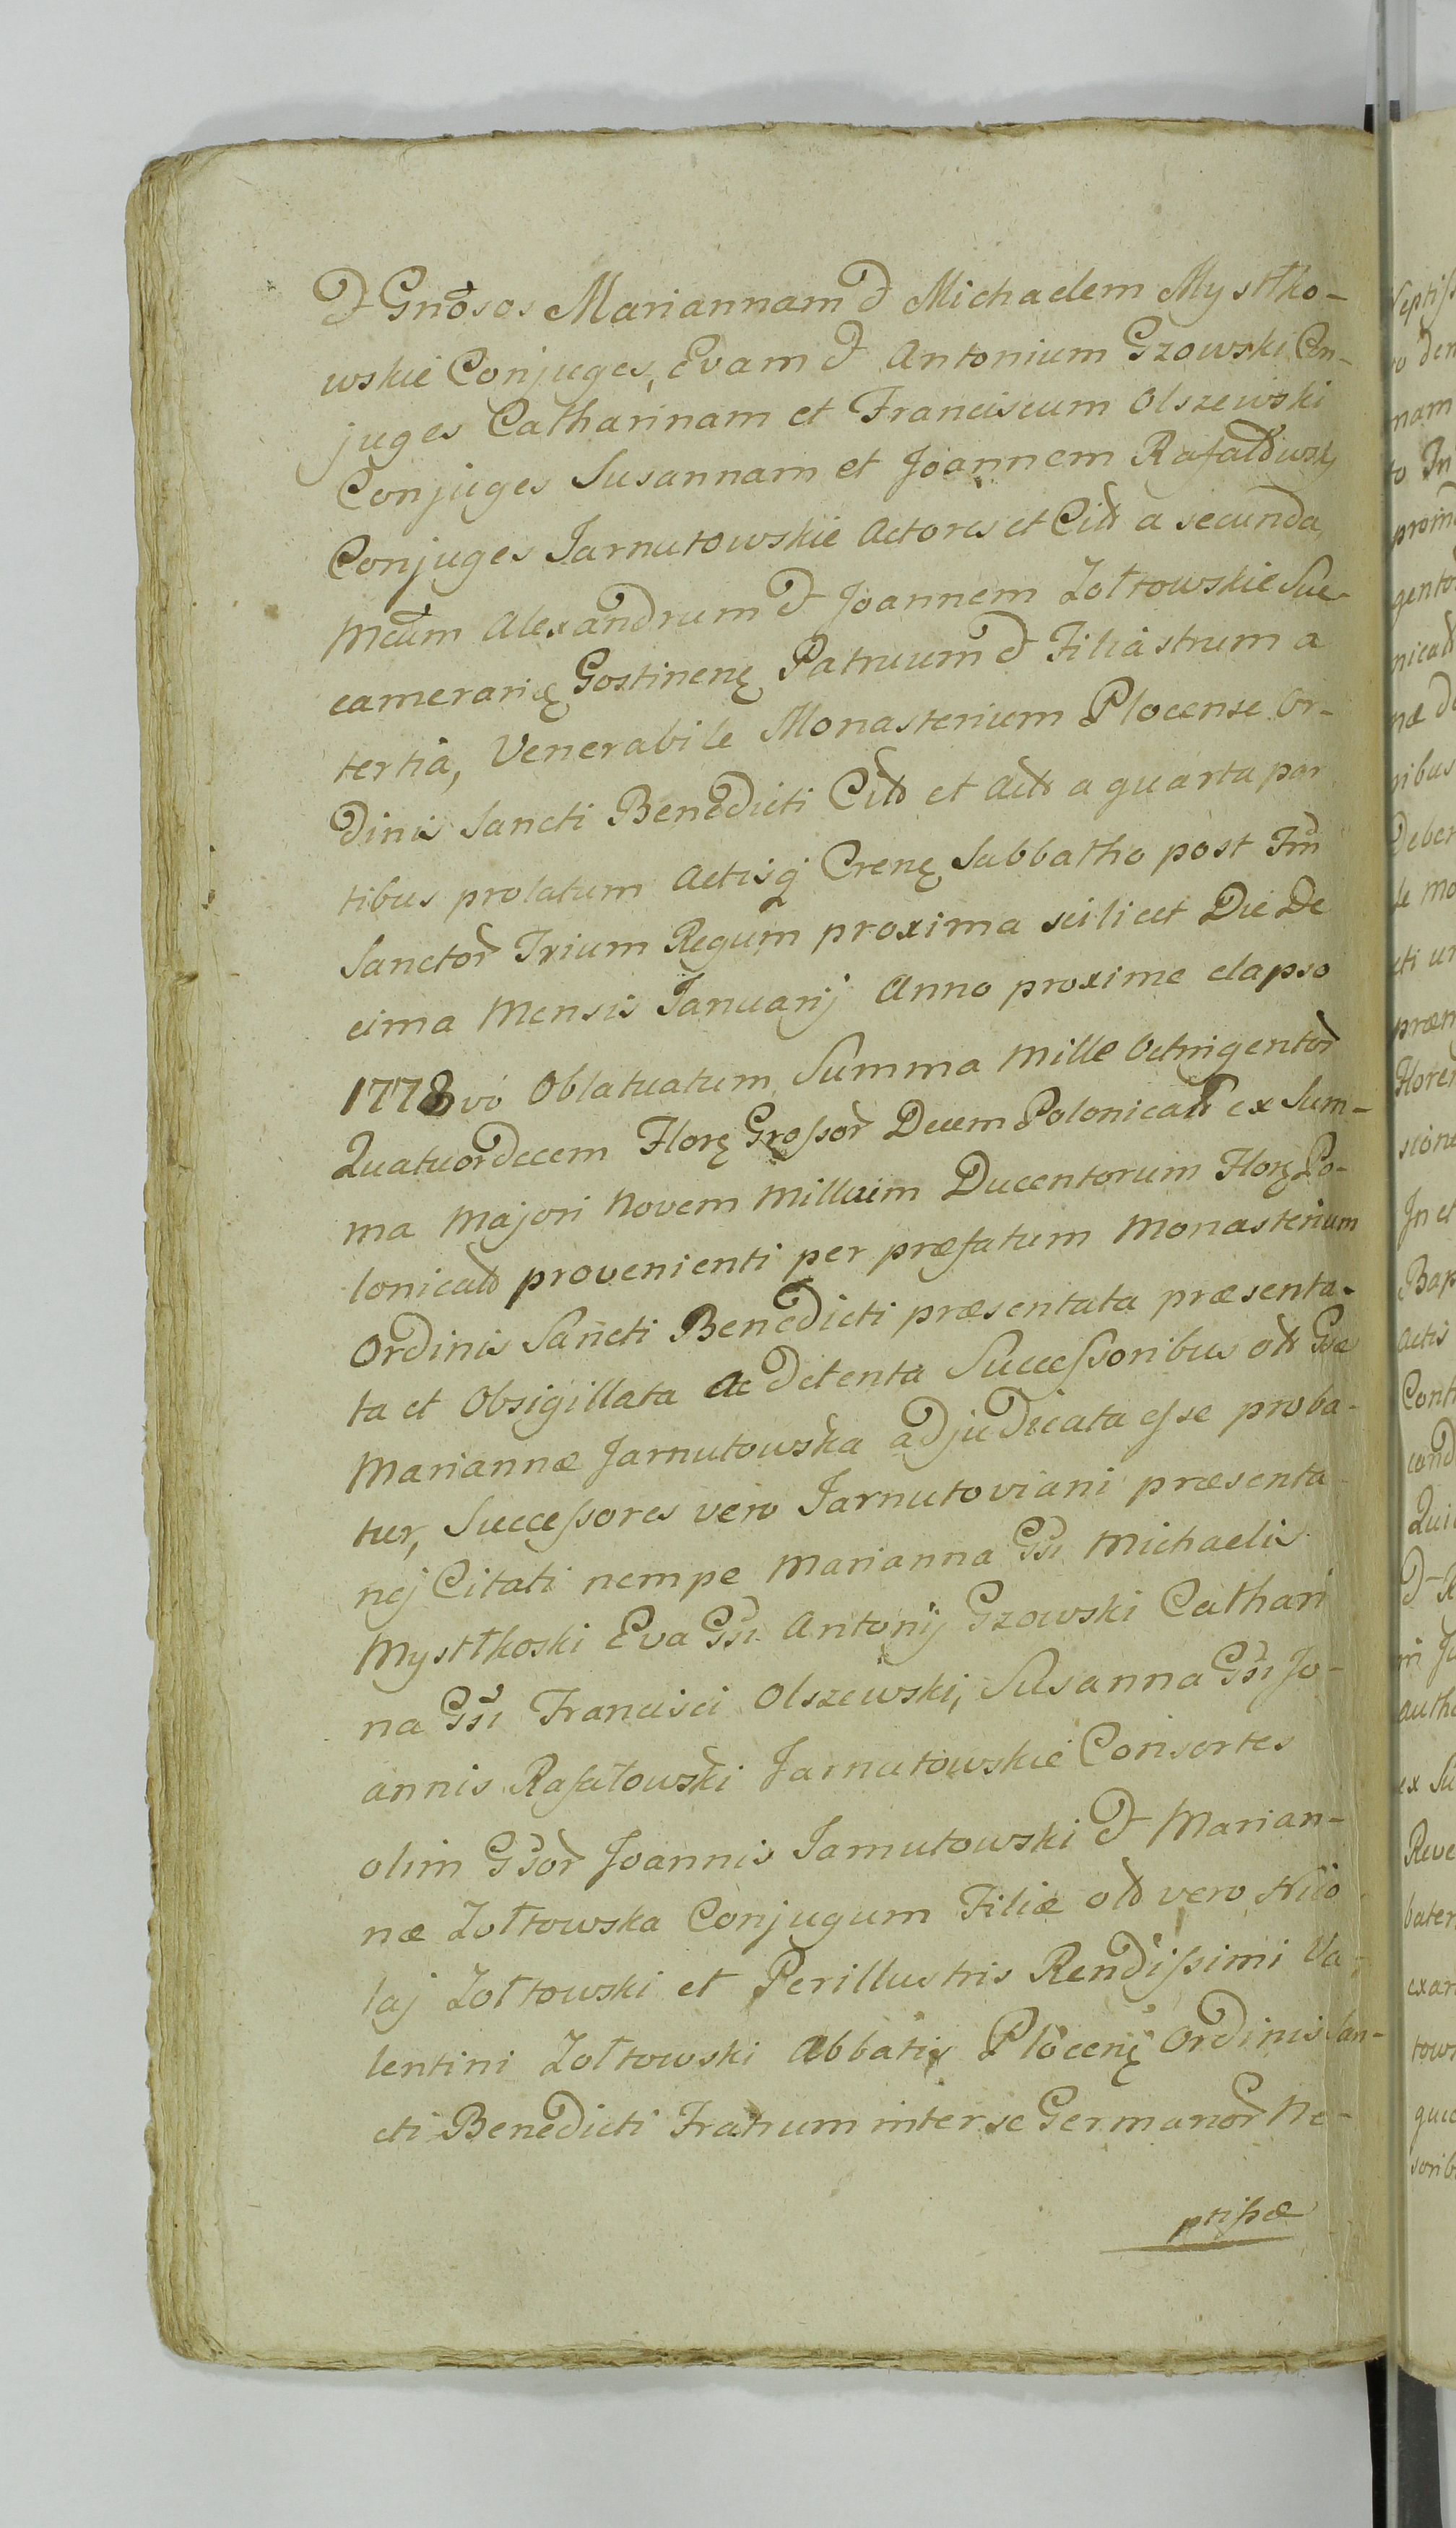 & Gnōsos Mariannam & Michaelem Mystko-
wskie Conjuges, Evam & Antonium Gzowski Con-
juges Catharinam et Franciscum Olszewski
Conjuges Susannam et Joannem Rafałowski
Conjuges Jarnutowskie Actores et Citt a secunda,
Mcum Alexandrum & Joannem Zołtowskie Suc-
camerarię Gostinenę Patruum & Filiastrum a
tertia, Venerabile Monasterium Plocense Or-
dinis Sancti Benedicti Citt et Actt a quarta par
tibus prolatum Actisq Crenę Sabbatho post Fm
Sanctor Trium Regum proxima scilicet Die De
cima Mensis Januarij Anno proxime elapso
1778vo Oblatuatum Summa Mille Octingentor
Quatuordecem Florę Grossor Decem Polonicalt ex Sum-
ma Majori Novem Millium Ducentorum Florę Po-
lonicalt provenienti per præfatum Monasterium
Ordinis Sancti Benedicti præsentata præsenta-
ta et Obsigillata ac detenta Successoribus olt Gsæ
Mariannæ Jarnutowska adjudicata esse proba-
tur, Successores vero Jarnutoviani præsenta-
nej Citati nempe Marianna Gsi Michaelis
Mystkoski Eva Gsi Antonij Gzowski Cathari
na Gsi Francisci Olszewski, Susanna Gsi Jo-
annis Rafałowski Jarnutowskie Consortes
olim Gsor Joannis Jarnutowski & Marian-
næ Zołtowska Conjugum Filiæ olt vero Nico
laj Zołtowski et Perillustris Rendissimi Va-
lentini Zołtowski Abbatis Plocenę Ordinis San-
cti Benedicti Fratrum inter se Germanor Ne-
ptissæ